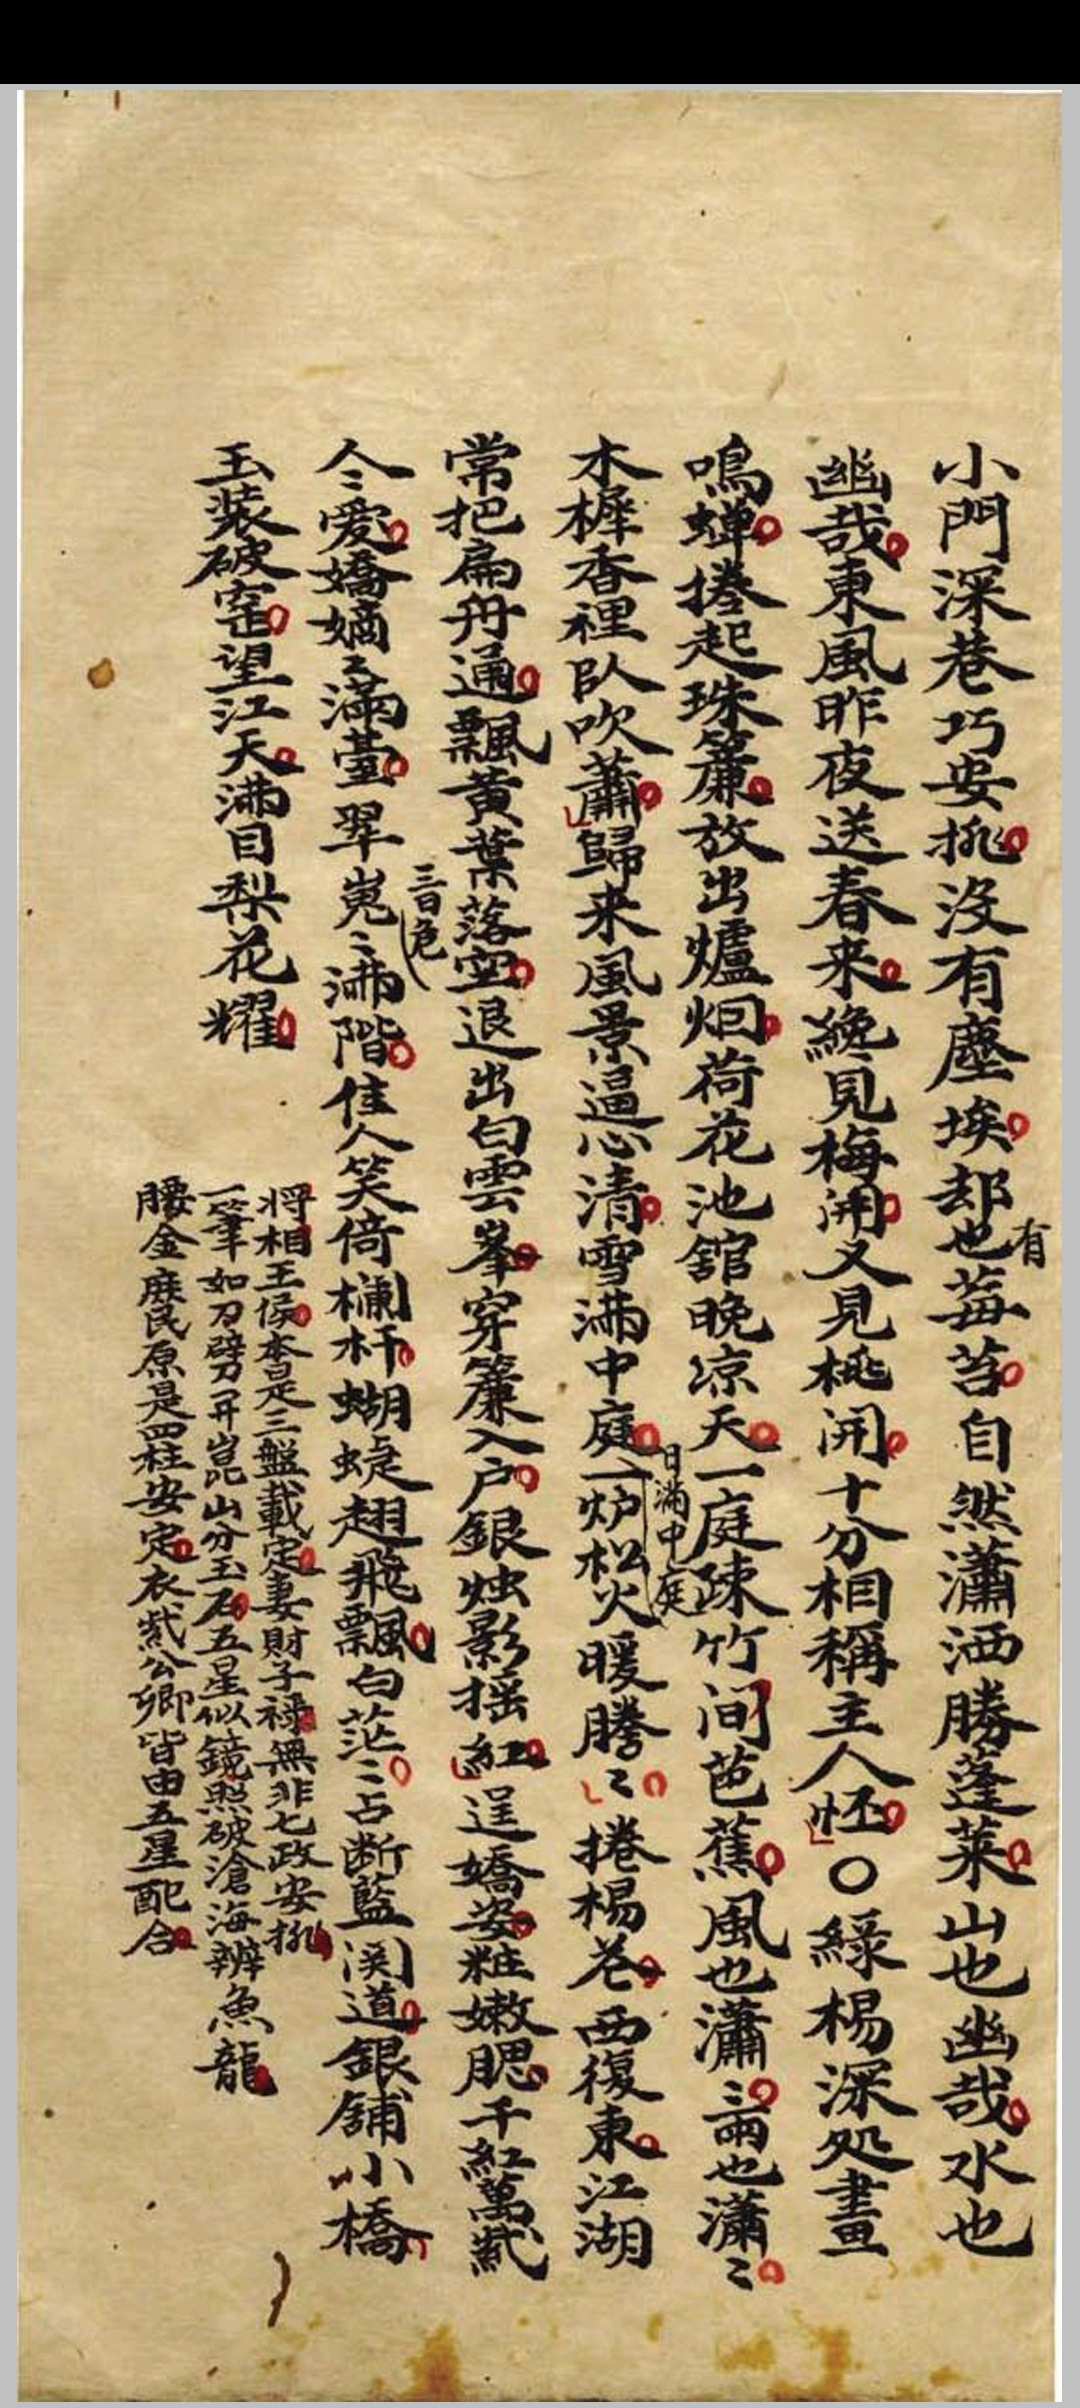 小門深巷巧安排沒有塵埃却也有莓苔自然瀟洒勝蓬萊山也幽哉水也
幽哉東風昨夜送春来纔見梅開又見桃開十分相稱主人怀〇綠楊深処畫
鳴蝉捲起珠簾放出爐烟荷花池舘晚凉天一庭疎竹间芭蕉風也瀟〻雨也瀟〻
木樨香裡臥吹蕭歸来風景逼心清雪滿中庭一炉松火暖騰〻捲楊巷西復東江湖
日滿中庭
常把扁舟通飄黄葉落空退出白雲峯穿簾入户銀烛影摇紅逞嬌姿粧嫩腮千紅萬紫
三百色
人〻愛嬌嫡〻滿臺翠嵬〻滿階佳人笑倚欄杆蝴蝶翅飛飄白茫〻占断藍関道銀舖小橋
玉装破窑望江天滿目梨花耀
将相王侯本是三盤載定妻財子禄無非七政安排
一筆如刀劈开崑山分玉石五星似鏡照破滄海辨魚龍
腰金庶民原是四柱安定衣紫公卿皆由五星配合